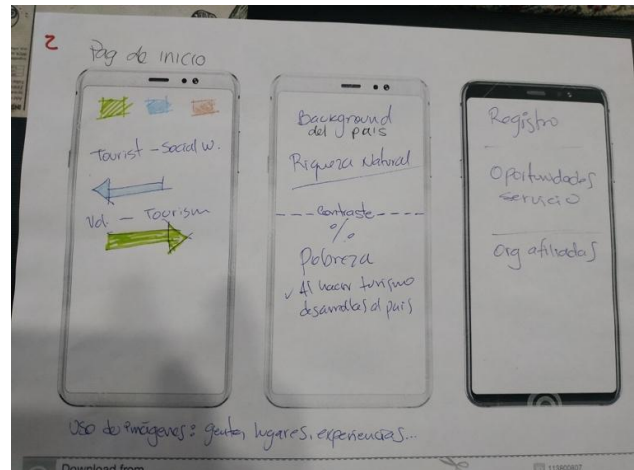 2
Pag de inicio
Tourist - Social W.
Vol. - Tourism
Background
del país
Riqueza Natural
Contraste
%
Pobreza
✓ Al hacer turismo
desarrollas el país
Registro
Oportunidades
servicio
Org afiliadas
Uso de imágenes: gente, lugares, experiencias...
Download from